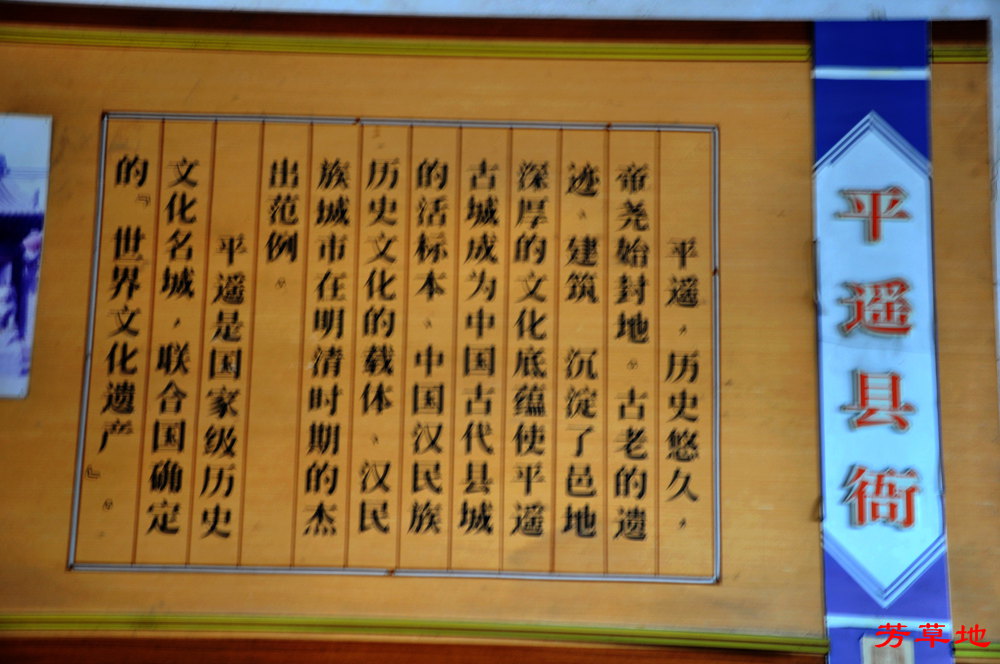 平遥县衙
平遥，历史悠久，
帝尧始封地。古老的遗
迹、建筑 沉淀了邑地
深厚的文化底蕴使平遥
古城成为中国古代县城
的活标本、中国汉民族
历史文化的载体、汉民
族城市在明清时期的杰
出范例。
平遥是国家级历史
文化名城，联合国确定
的『世界文化遗产』。
芳草地